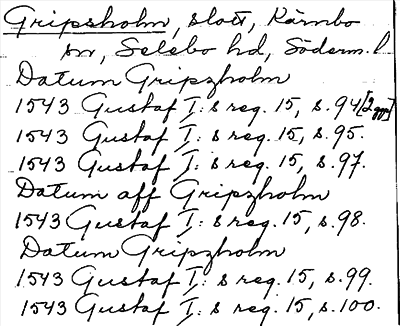 Gripsholm, slott, Kärnbo
sn, Selebo hd, Söderm. l
Datum Gripzholm
1543 Gustaf I: s reg. 15, s. 94 [2 ggr]
1543 Gustaf I: s reg. 15, s. 95.
1543 Gustaf I: s reg. 15, s. 97.
Datum aff Gripzholm
1543 Gustaf I: s reg. 15, s. 98.
Datum Gripzholm
1543 Gustaf I: s reg. 15, s. 99.
1543 Gustaf I: s reg. 15, s. 100.